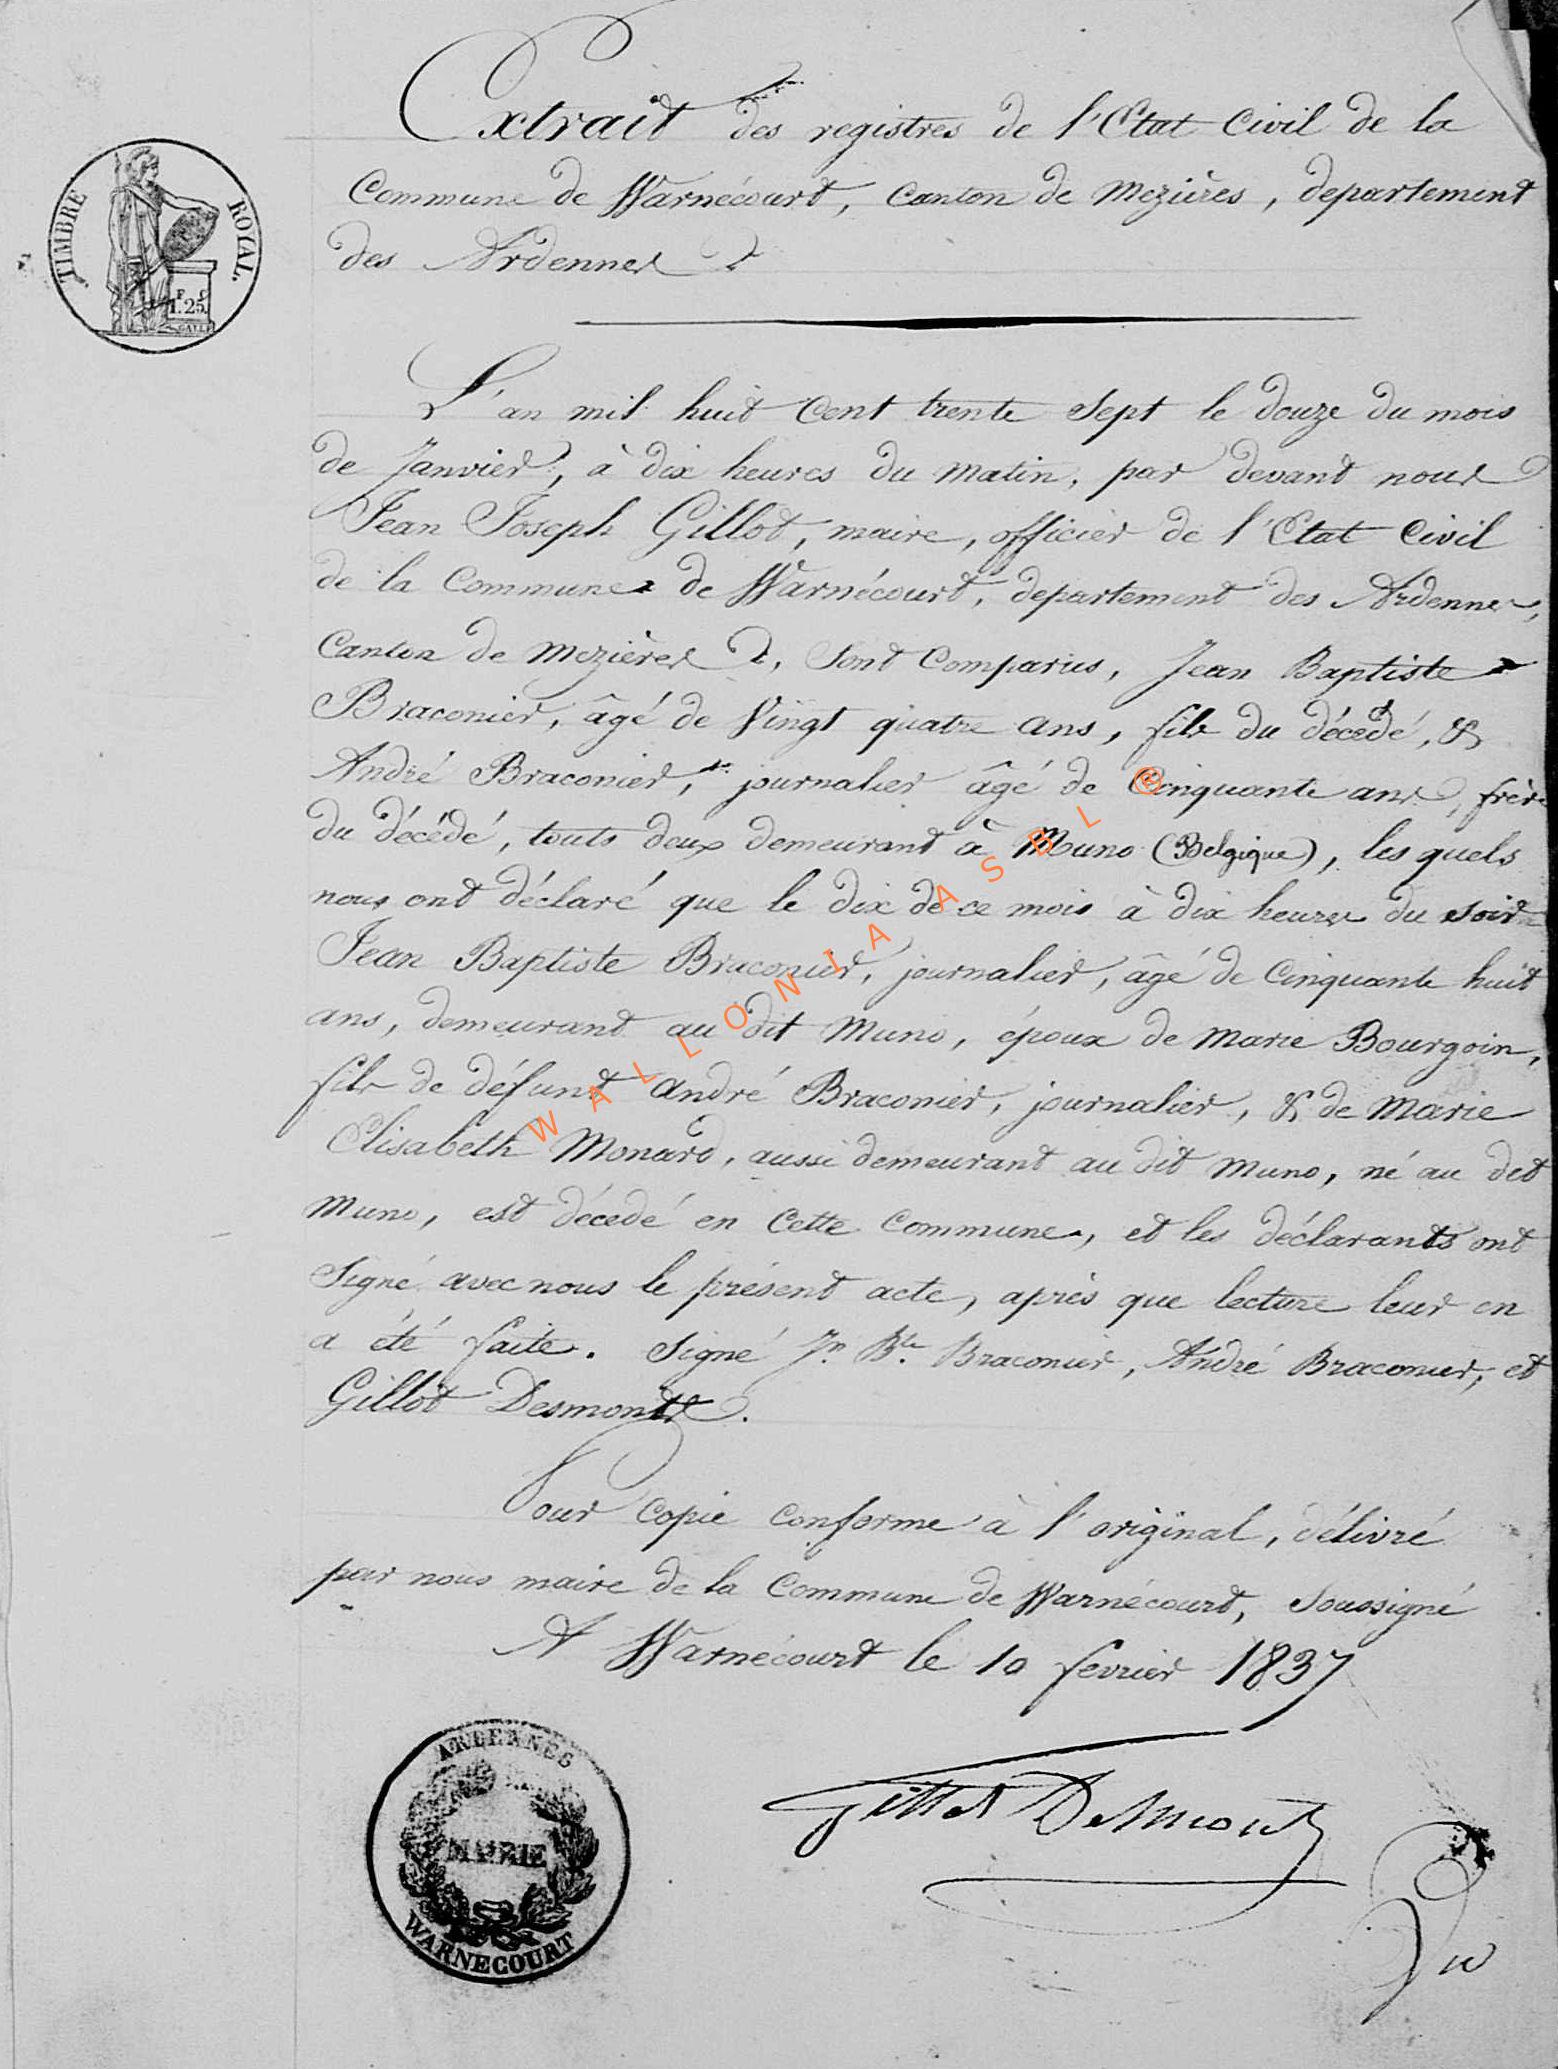 Extrait des registres de l'Etat Civil de la
Commune de Warnécourt, Canton de Mezières, departement
des Ardennes
TIMBRE ROYAL.
F C
1.25.
L'an mil huit Cent trente Sept le douze du mois
de Janvier, à dix heures du matin, par devant nous
Jean Joseph Gillot, maire, officier de l'Etat Civil
de la Commune de Warnécourt, departement des Ardennes,
Canton de Mezières, Sont Comparus, Jean Baptiste
Braconier, âgé de Vingt quatre ans, fils du décédé, &
André Braconier, journalier âgé de Cinquante ans, frère
du décédé, touts deux demeurant à Muno (Belgique), les quels
nous ont déclaré que le dix de ce mois à dix heures du soir
Jean Baptiste Braconier, journalier, âgé de Cinquante huit
ans, demeurant au dit Muno, époux de Marie Bourgoin,
fils de défunt André Braconier, journalier, & de Marie
Elisabeth Monard, aussi demeurant au dit Muno, né au dit
Muno, est décédé en Cette Commune, et les déclarants ont
Signé avec nous le présent acte, après que lecture leur en
a été faite. Signé Jn. Bte. Braconier, André Braconier, et
Gillot Desmont.
Pour Copie Conforme à l'original, délivré
par nous maire de la Commune de Warnécourt, Soussigné
A Warnécourt le 10 fevrier 1837
Gillot Desmont
ARDENNES
MAIRIE
WARNECOURT
WALLONIA ASBL ®